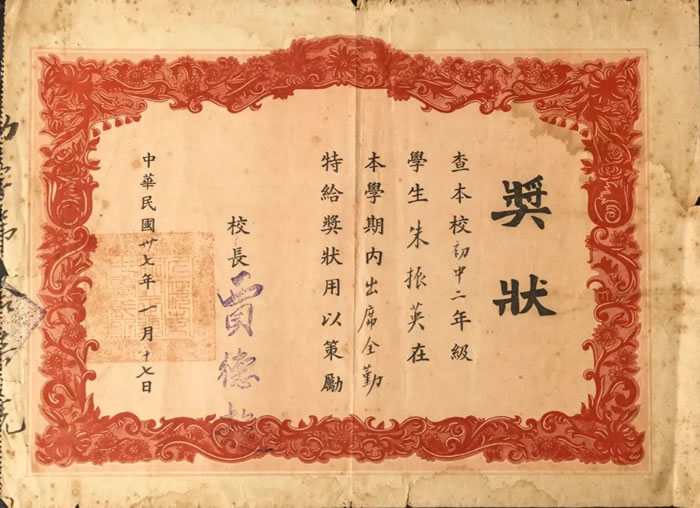 獎狀
查本校初中二年級
學生朱振英在
本學期内出席全勤
特給獎狀用以策勵
校長 賈德
中華民國卅七年一月十七日